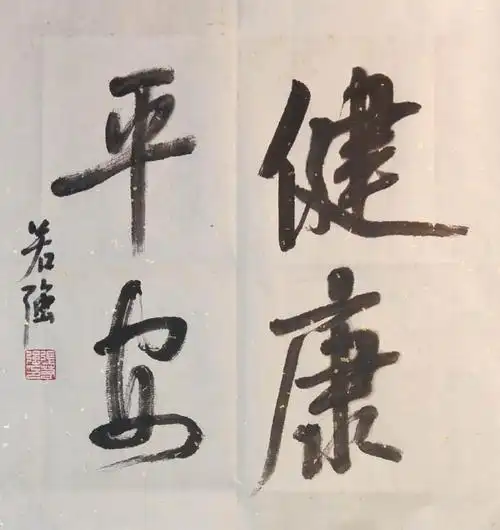 健康
平安
若強